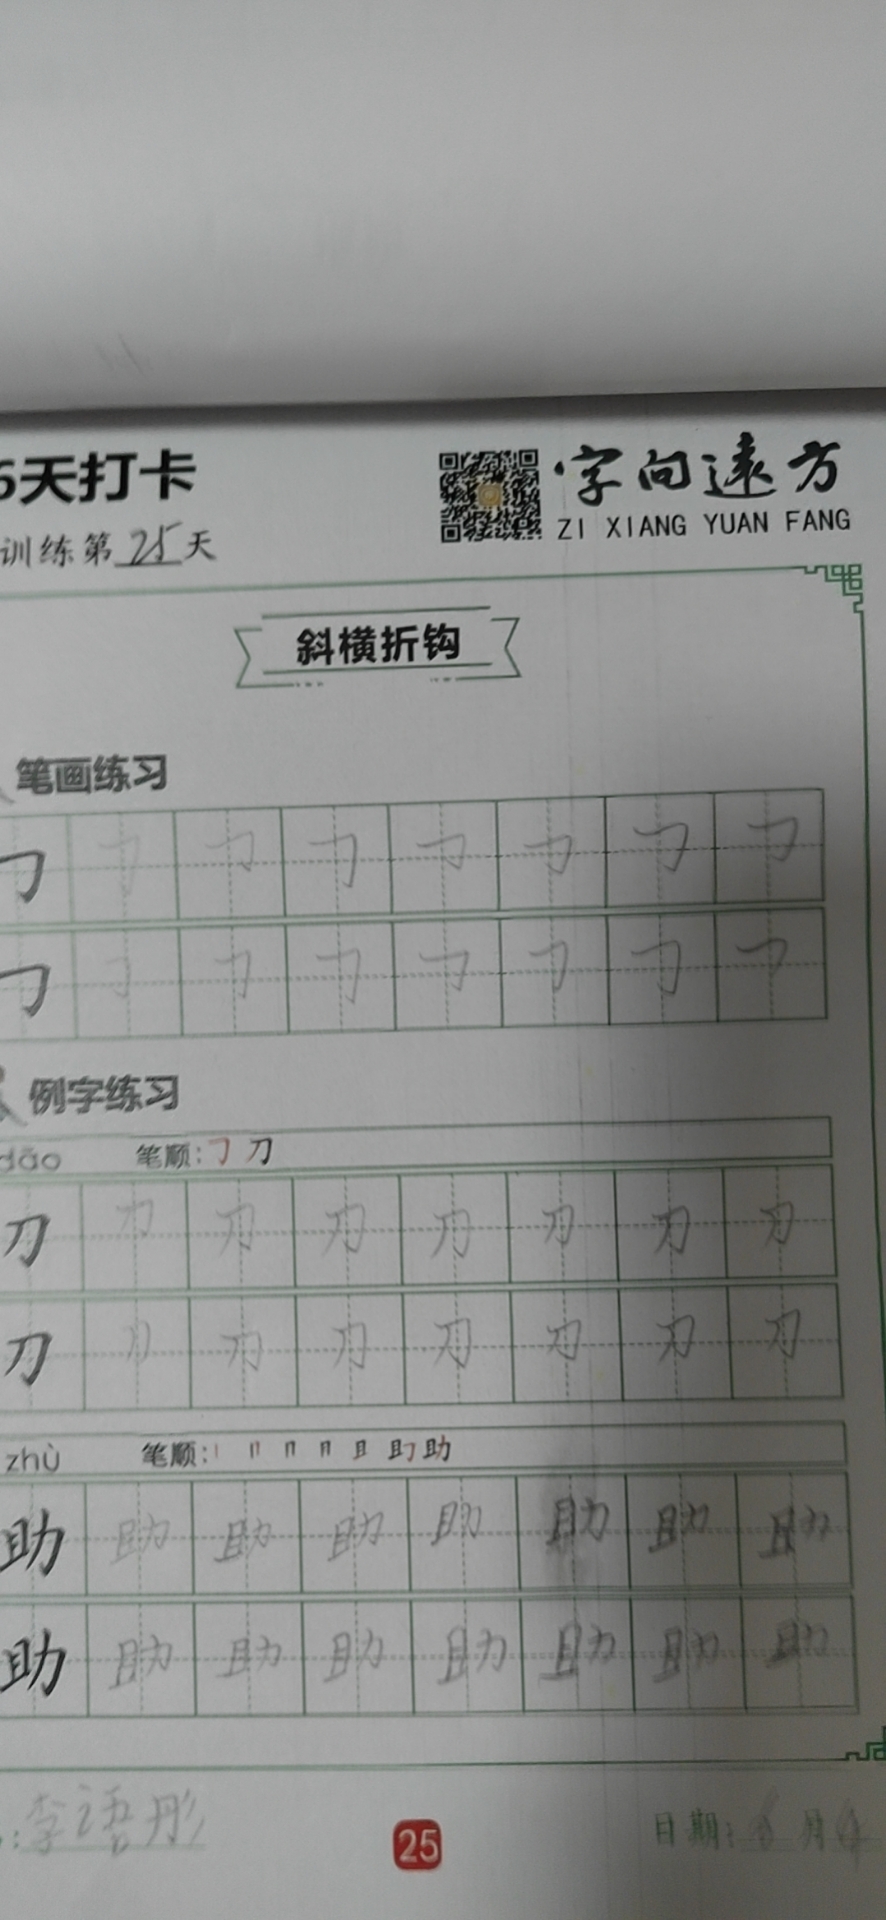 6天打卡
字向远方
ZI XIANG YUAN FANG
训练第25天
斜横折钩
笔画练习
㇆ ㇆ ㇆ ㇆ ㇆ ㇆ ㇆ ㇆
㇆ ㇆ ㇆ ㇆ ㇆ ㇆ ㇆ ㇆
例字练习
dāo 笔顺: ㇆ 刀
刀 刀 刀 刀 刀 刀 刀 刀
刀 刀 刀 刀 刀 刀 刀 刀
zhù 笔顺: 助
助 助 助 助 助 助 助 助
助 助 助 助 助 助 助 助
李语彤
25
日期: 月